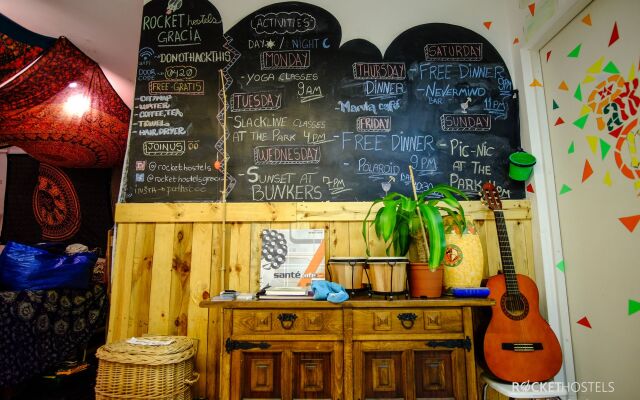 ROCKET hostels
GRACIA
WIFI
DONOTHACKTHIS
DOOR
CODE
0420
FREE-GRATIS
- CITYMAP
- WATER
- COFFEE, TEA
- TOWELS
- HAIR DRYER
JOIN US
@rockethostels
@rockethostelsgracia
ACTIVITIES
DAY / NIGHT
MONDAY
- YOGA CLASSES
9AM
TUESDAY
SLACKLINE CLASSES
AT THE PARK 4PM
WEDNESDAY
- SUNSET AT
BUNKERS 7PM
THURSDAY
DINNER
Manila café
FRIDAY
FREE DINNER
9PM
- POLAROID
BAR
SATURDAY
- FREE DINNER
9PM
- NEVERMIND
BAR
11PM
SUNDAY
- PIC-NIC
AT THE
PARK
santé
RØCKETHOSTELS